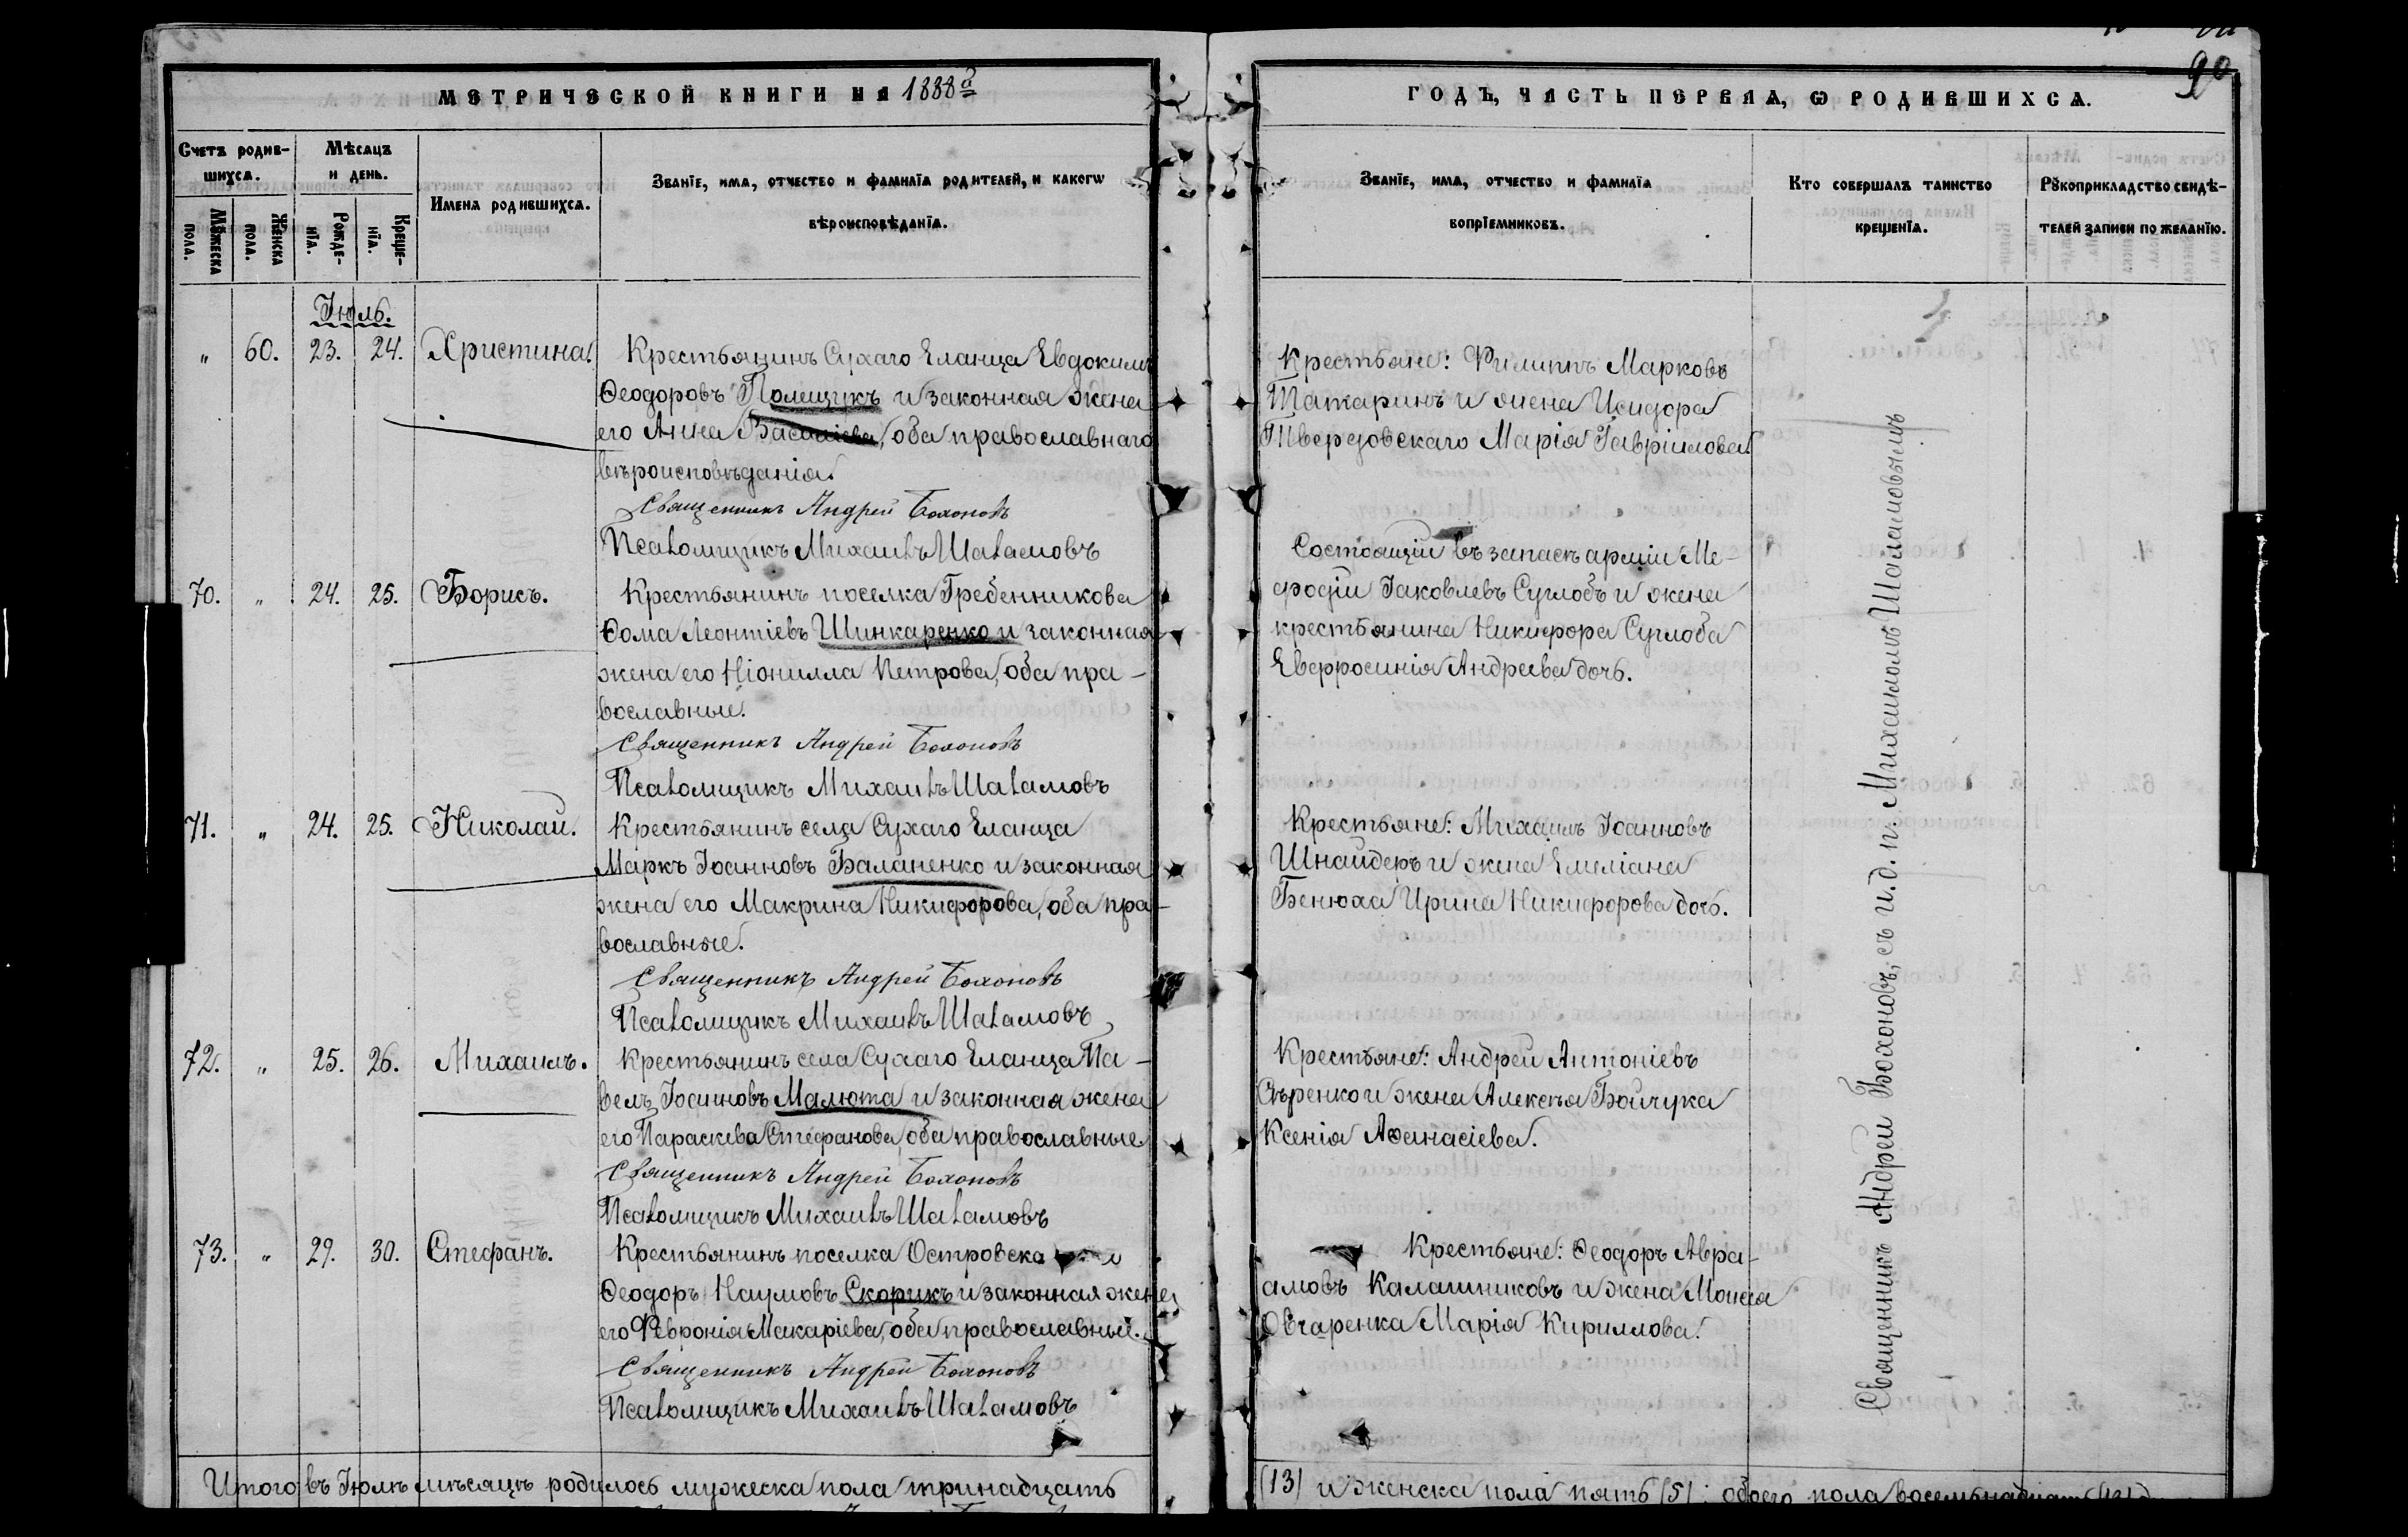 90
МЕТРИЧЕСКОЙ КНИГИ НА 1888й
ГОДЪ, ЧАСТЬ ПЕРВАЯ, Ѡ РОДИВШИХСѦ.
Счетъ родив-
шихсѧ.
Мѣсѧцъ
и день.
Мꙋжеска
пола.
Женска
пола.
Рожде-
нїѧ.
Креще-
нїѧ.
Имена родившихсѧ.
Званїе, имѧ, отчество и фамилїѧ родителей, и какогѡ
вѣроисповѣданїѧ.
Званїе, имѧ, отчество и фамилїѧ
воспрїемниковъ.
Кто совершалъ таинство
крещенїѧ.
Рꙋкоприкладство свидѣ-
телей записи по желанїю.
Іюль.
" 60. 23. 24. Христина.
Крестьянинъ Сухаго Еланца Евдокимъ
Ѳеодоровъ Полищукъ и законная жена
его Анна Василіева, оба православнаго
вѣроисповѣданія.
Священникъ Андрей Бохоновъ
Псаломщикъ Михаилъ Шаламовъ
Крестьяне: Филиппъ Марковъ
Татаринъ и жена Исидора
Твердовскаго Марія Гавріилова.
70. " 24. 25. Борисъ.
Крестьянинъ поселка Гребенникова
Ѳома Леонтіевъ Шинкаренко и законная
жена егоНіонилла Петрова, оба пра-
вославные.
Священникъ Андрей Бохоновъ
Псаломщикъ Михаилъ Шаламовъ
Состоящій въ запасѣ арміи Ме-
фодій Іаковлевъ Суглобъ и жена
крестьянина Никифора Суглоба
Евфросинія Андреева дочь.
71. " 24. 25. Николай.
Крестьянинъ села Сухаго Еланца
Маркъ Іоанновъ Баланенко и законная
жена его Макрина Никифорова, оба пра-
вославные.
Священникъ Андрей Бохоновъ
Псаломщикъ Михаилъ Шаламовъ
Крестьяне: Михаилъ Іоанновъ
Шнайдеръ и жена Емеліана
Бенюха Ирина Никифорова дочь.
72. " 25. 26. Михаилъ.
Крестьянинъ села Сухаго Еланца Па-
велъ Іоанновъ Малюта и законная жена
его Параскева Стефанова, оба православные.
Священникъ Андрей Бохоновъ
Псаломщикъ Михаилъ Шаламовъ
Крестьяне: Андрей Антоніевъ
Сѣренко и жена Алексѣя Бойчука
Ксенія Аѳанасіева.
73. " 29. 30. Стефанъ.
Крестьянинъ поселка Островска
Ѳеодоръ Наумовъ Скорикъ и законная жена
его Февронія Макаріева, оба православные.
Священникъ Андрей Бохоновъ
Псаломщикъ Михаилъ Шаламовъ
Крестьяне: Ѳеодоръ Авра-
амовъ Калашниковъ и жена Моисея
Овчаренка Марія Кириллова.
Священникъ Андрей Бохоновъ, съ и. д. п. Михаиломъ Шаламовымъ
Итого въ Іюлѣ мѣсяцѣ родилось мужеска пола тринадцать
(13) и женска пола пять (5); обоего пола восемьнадцать